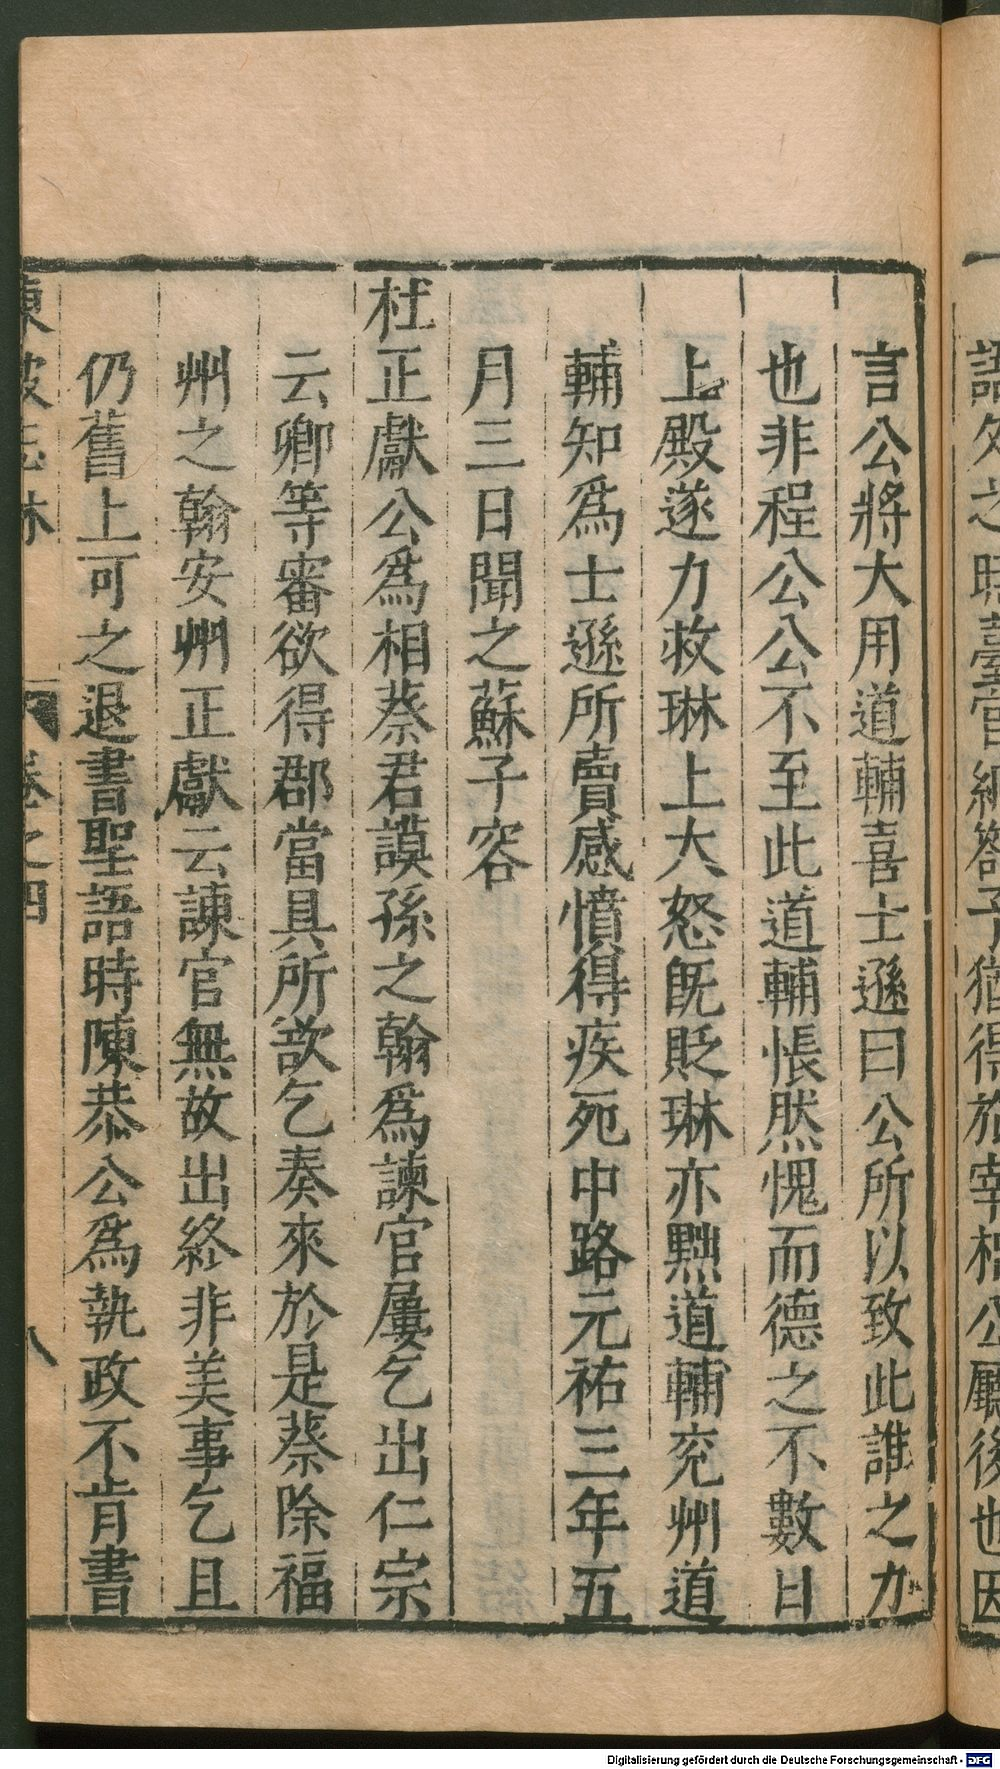 語久之
言公將大用道輔喜士遜曰公所以致此誰之力
也非程公公不至此道輔悵然愧而德之不數日
上殿遂力救琳上大怒旣貶琳亦黜道輔兖州道
輔知爲士遜所賣感憤得疾死中路元祐三年五
月三日聞之蘇子容
杜正獻公爲相蔡君謨孫之翰爲諫官屢乞出仁宗
云卿等審欲得郡當具所欲乞奏來於是蔡除福
州之翰安州正獻云諫官無故出終非美事乞且
仍舊上可之退書聖語時陳恭公爲執政不肯書
東坡志林 卷之四 八
Digitalisierung gefördert durch die Deutsche Forschungsgemeinschaft - DFG